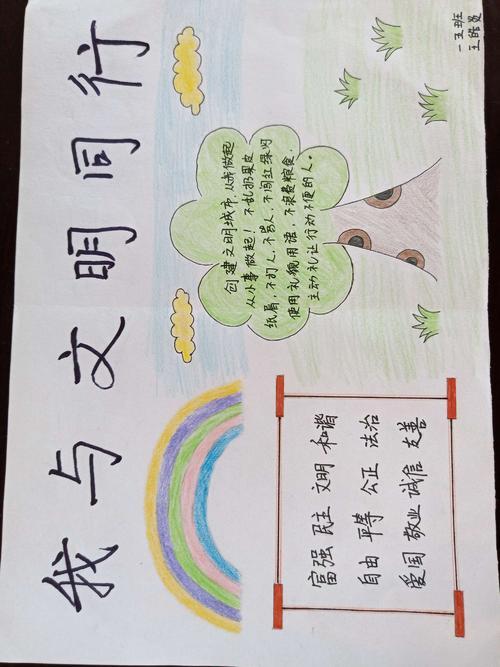 我与文明同行
富强 民主 文明 和谐
自由 平等 公正 法治
爱国 敬业 诚信 友善
创建文明城市,从我做起
从小事做起!不乱扔果皮
纸屑,不打人,不骂人,不闯红绿灯
使用礼貌用语,不浪费粮食,
主动礼让行动不便的人。
一五班
王